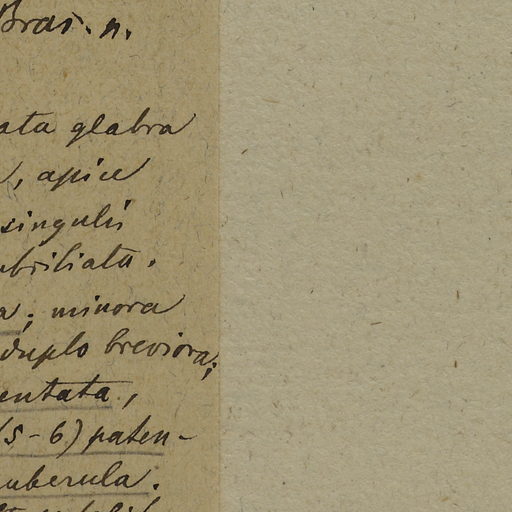 Bras. n.
ata glabra
, apice
singuli
briliata.
a; minora
duplo breviora;
entata,
(5-6) paten-
uberula.